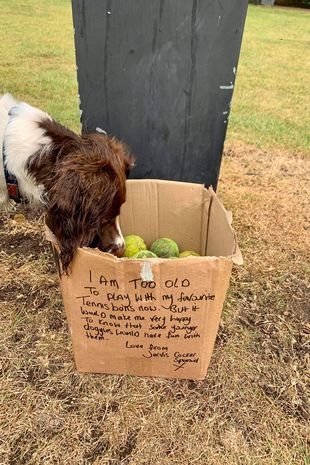 I AM TOO OLD
To play with my favourite
Tennis balls now. But it
would make me very happy
To know that some younger
doggies would have fun with
them.
Love from
Jarvis Cocker
Spaniel
x